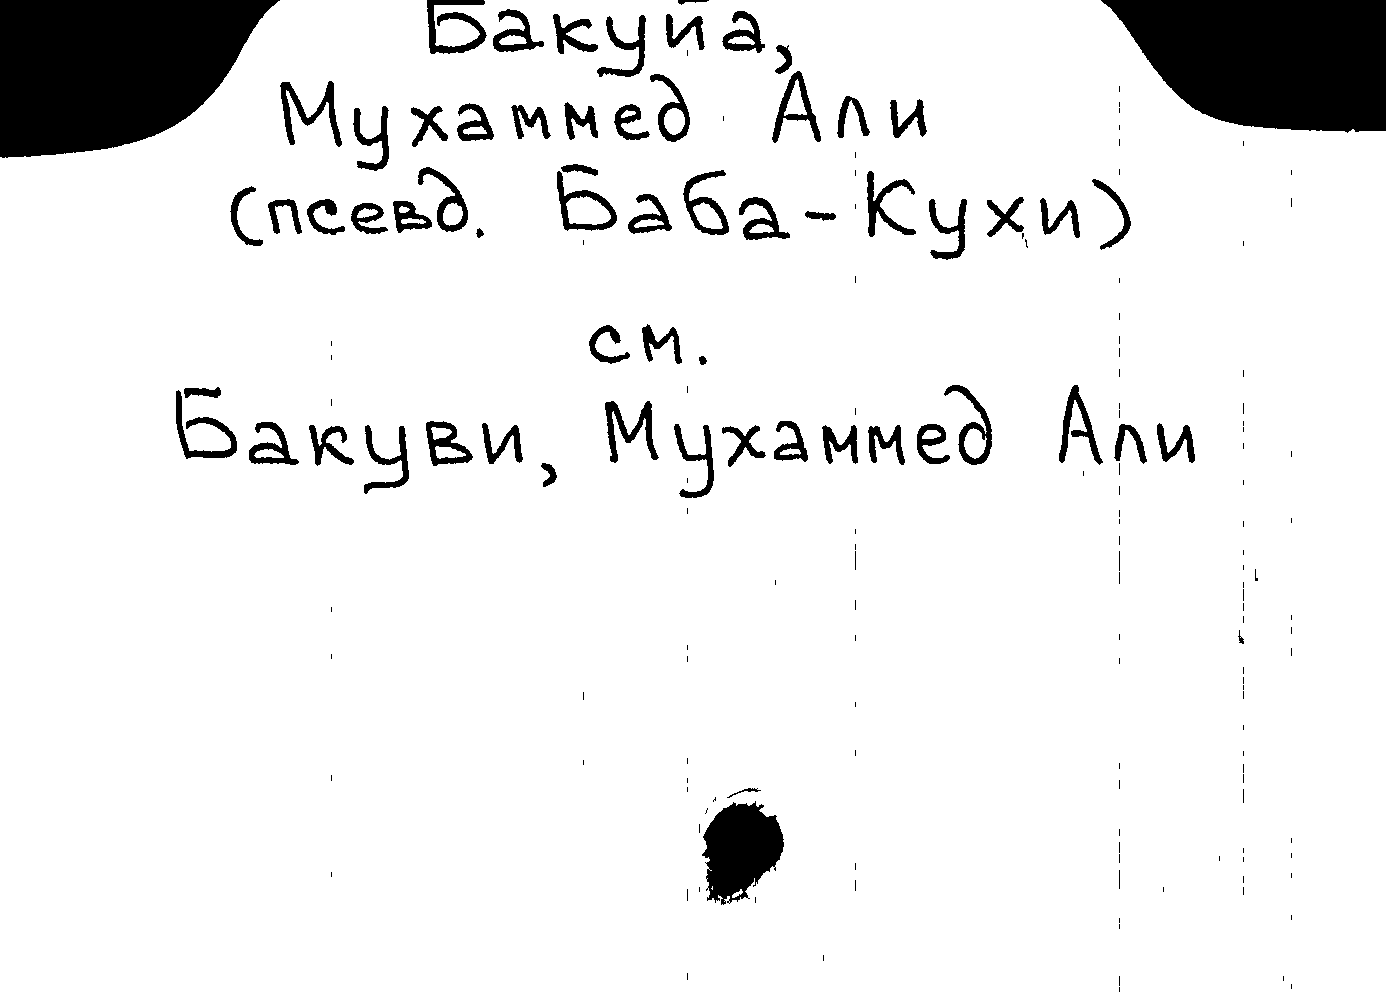 Бакуйа,
Мухаммед Али
(псевд. Баба-Кухи)
см.
Бакуви, Мухаммед Али